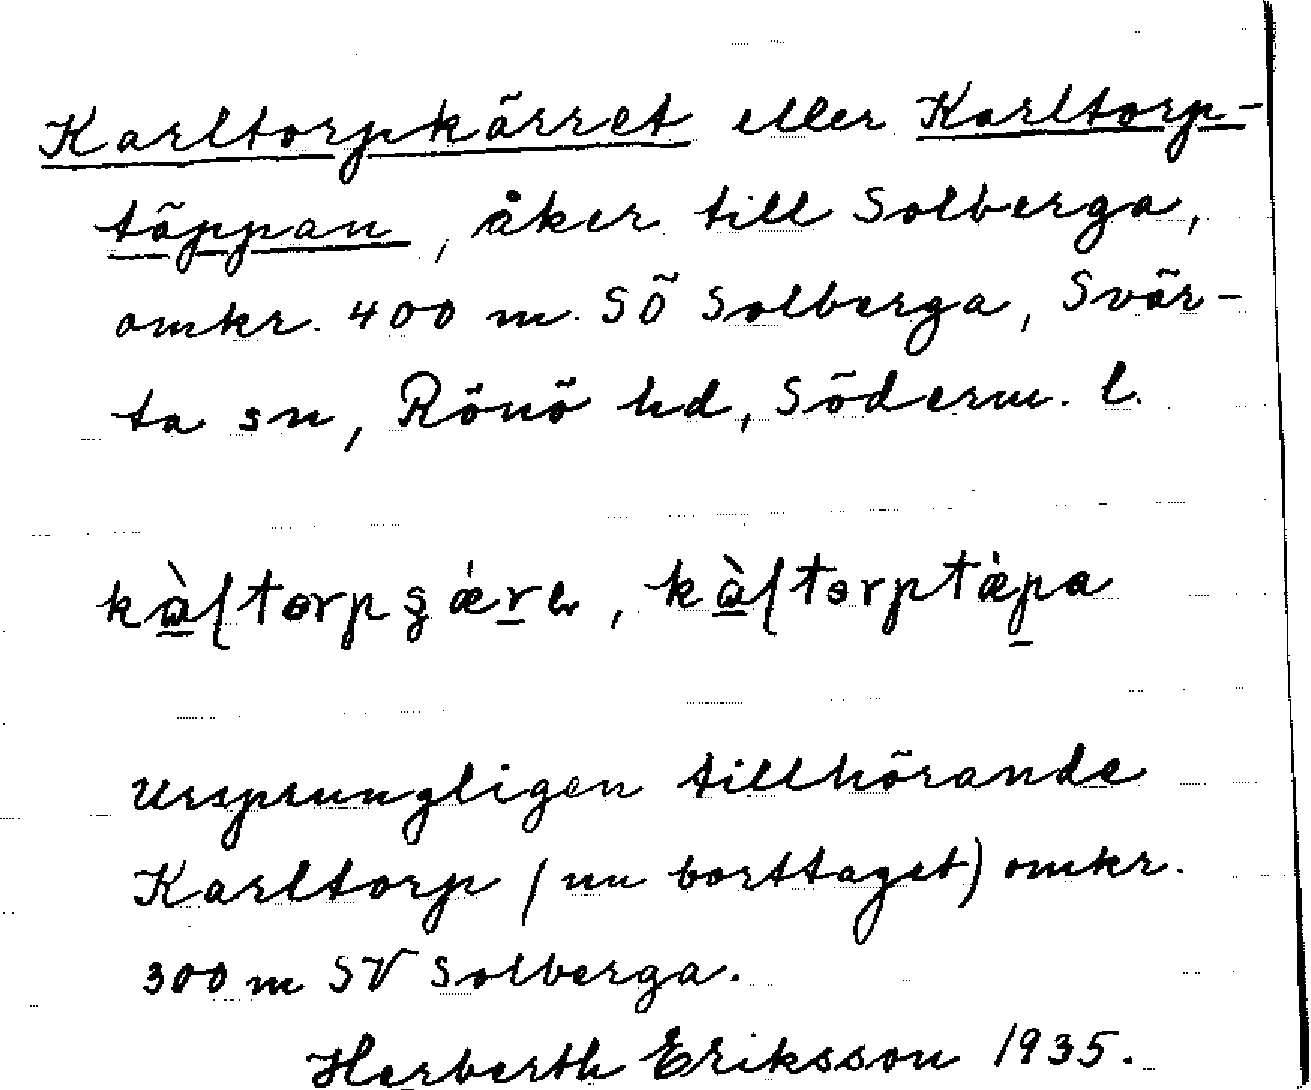 Karltorpkärret eller Karltorp-
täppan, åker till Solberga,
omkr. 400 m. SÖ Solberga, Svär-
ta sn, Rönö hd, Söderm. l.
Ursprungligen tillhörande
Karltorp (nu borttaget) omkr.
300 m SV Solberga.
Herberth Eriksson 1935.